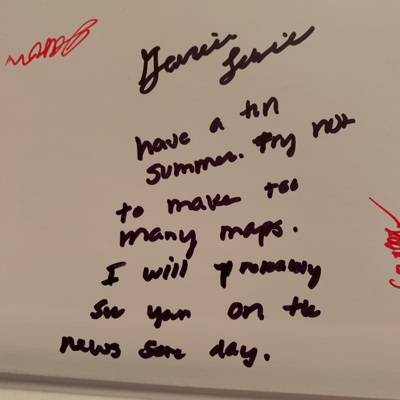 have a fun
summer. Try not
to make too
many maps.
I will probably
see you on the
news some day.